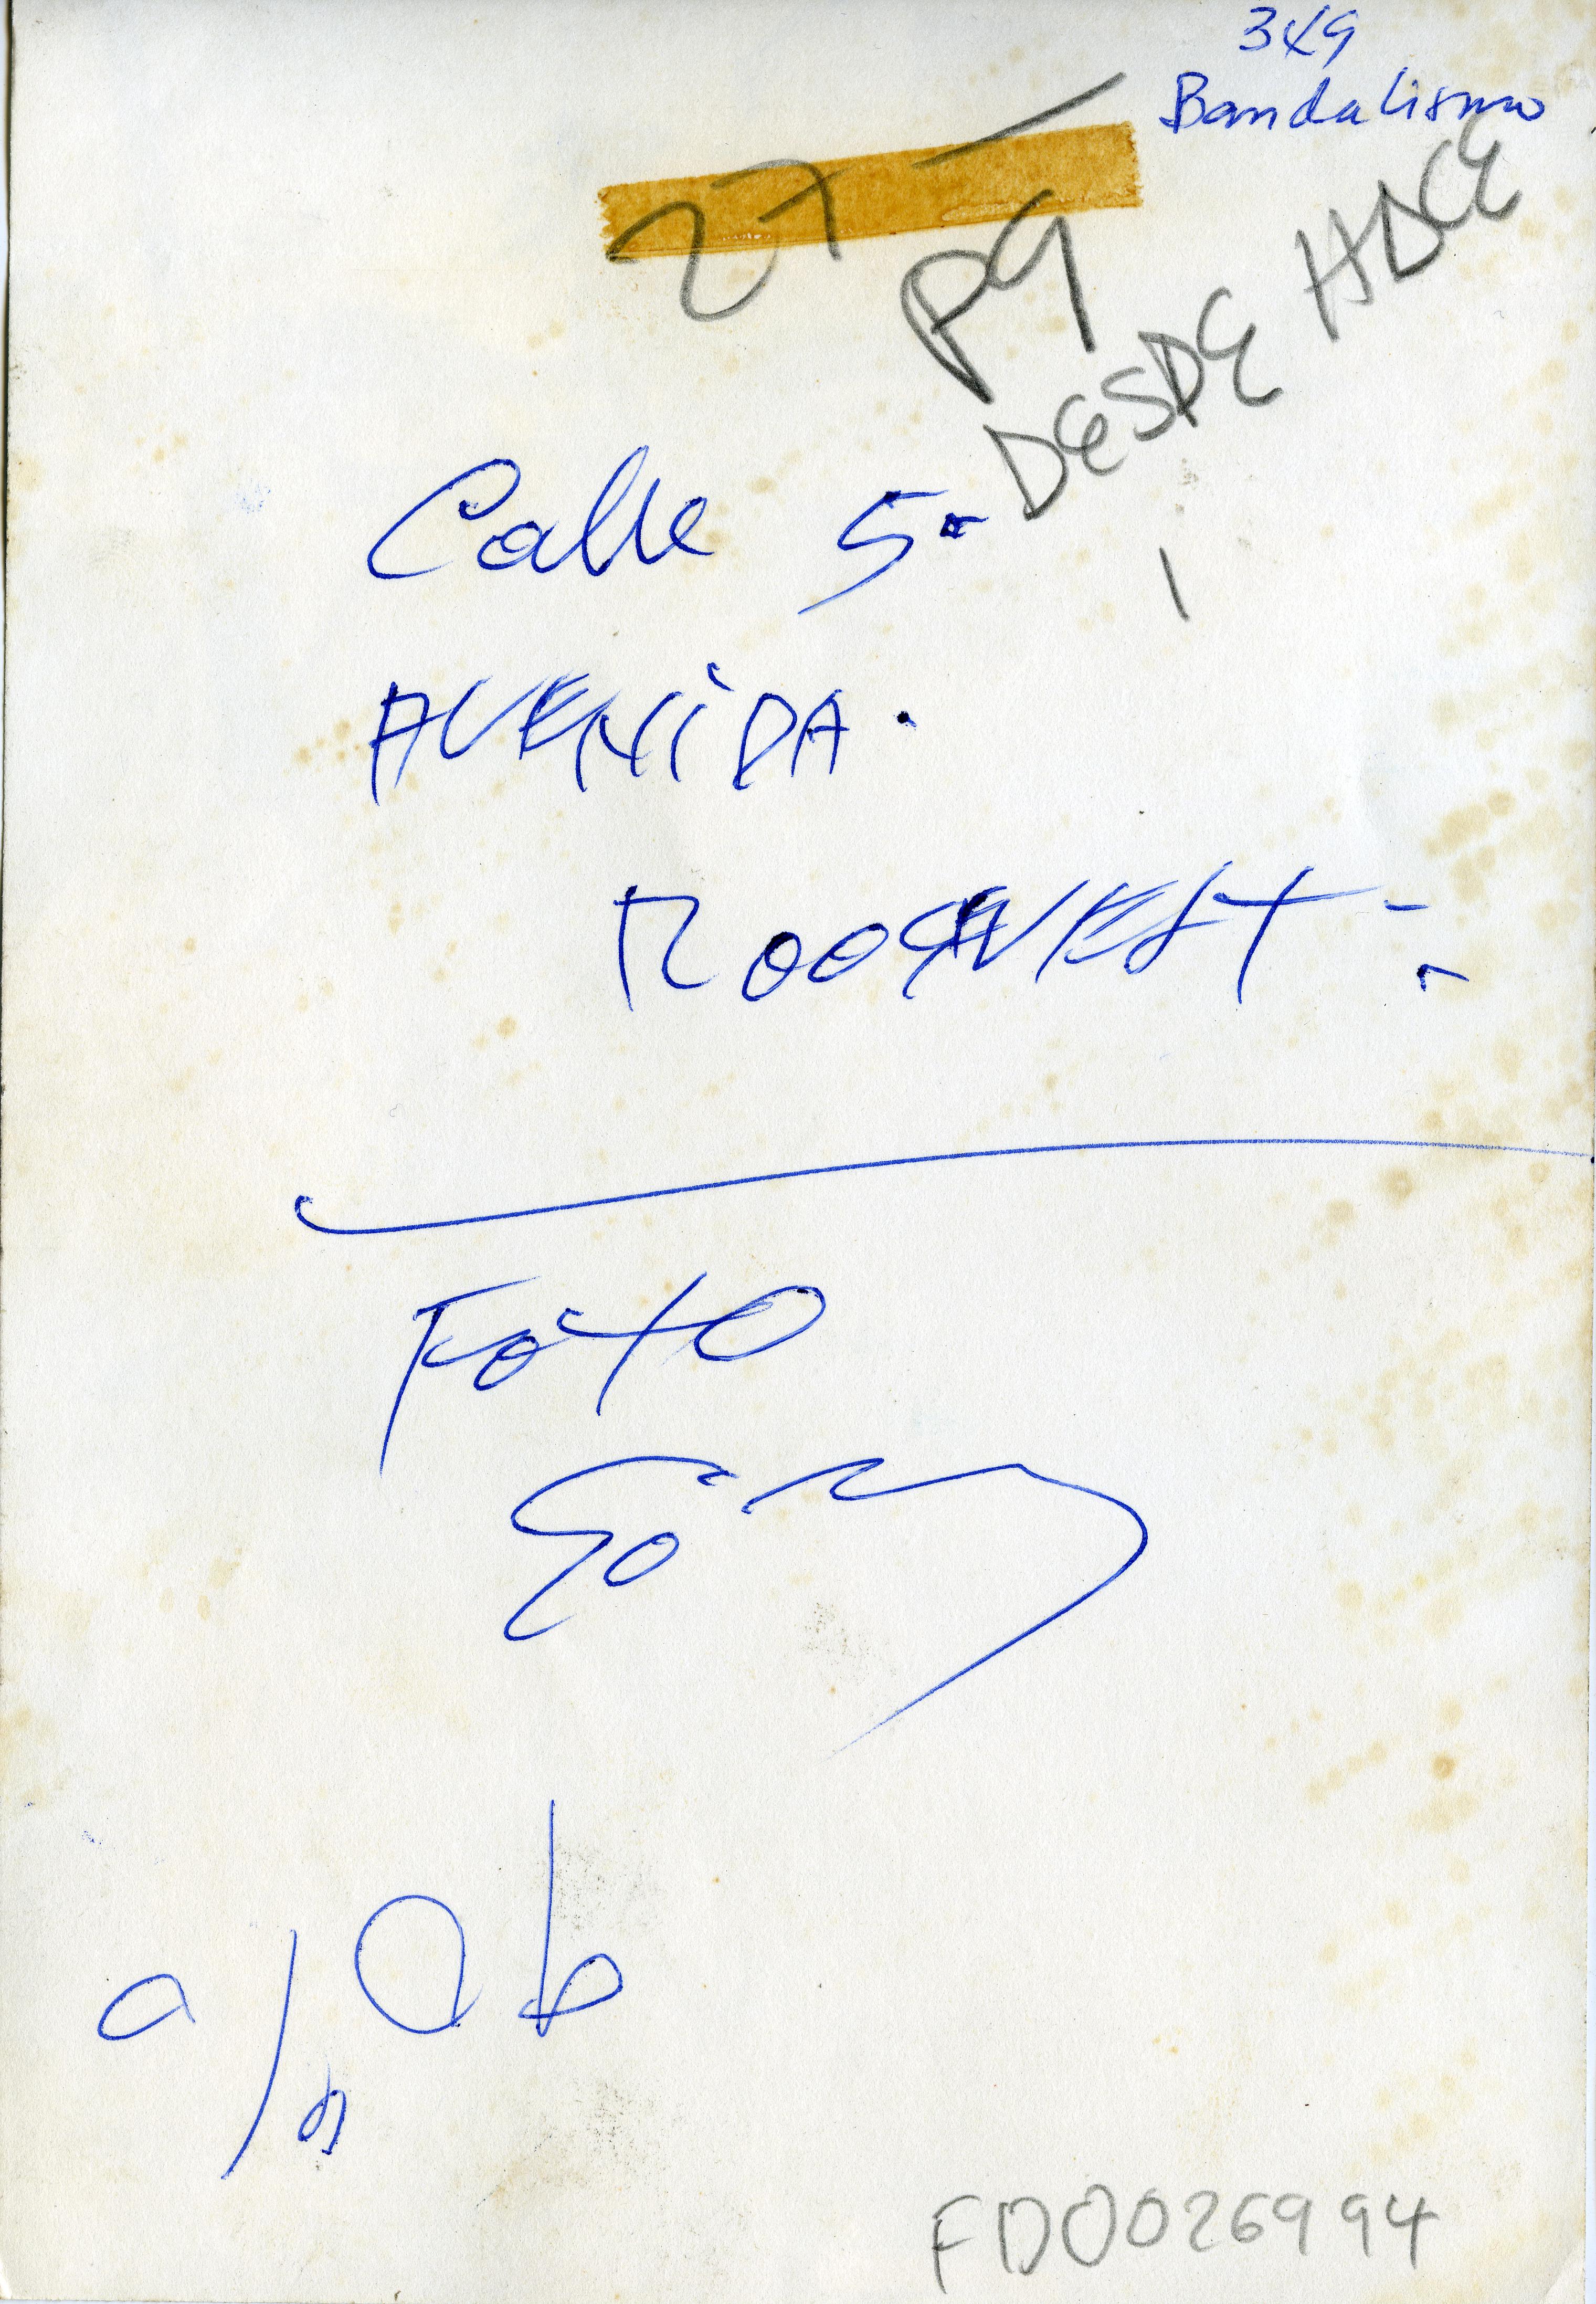 349
Bandalismo
27 -
P9
DESDE HACE
Calle 5a
AVENIDA.
ROOSEVELT
FOTO
FD0026994